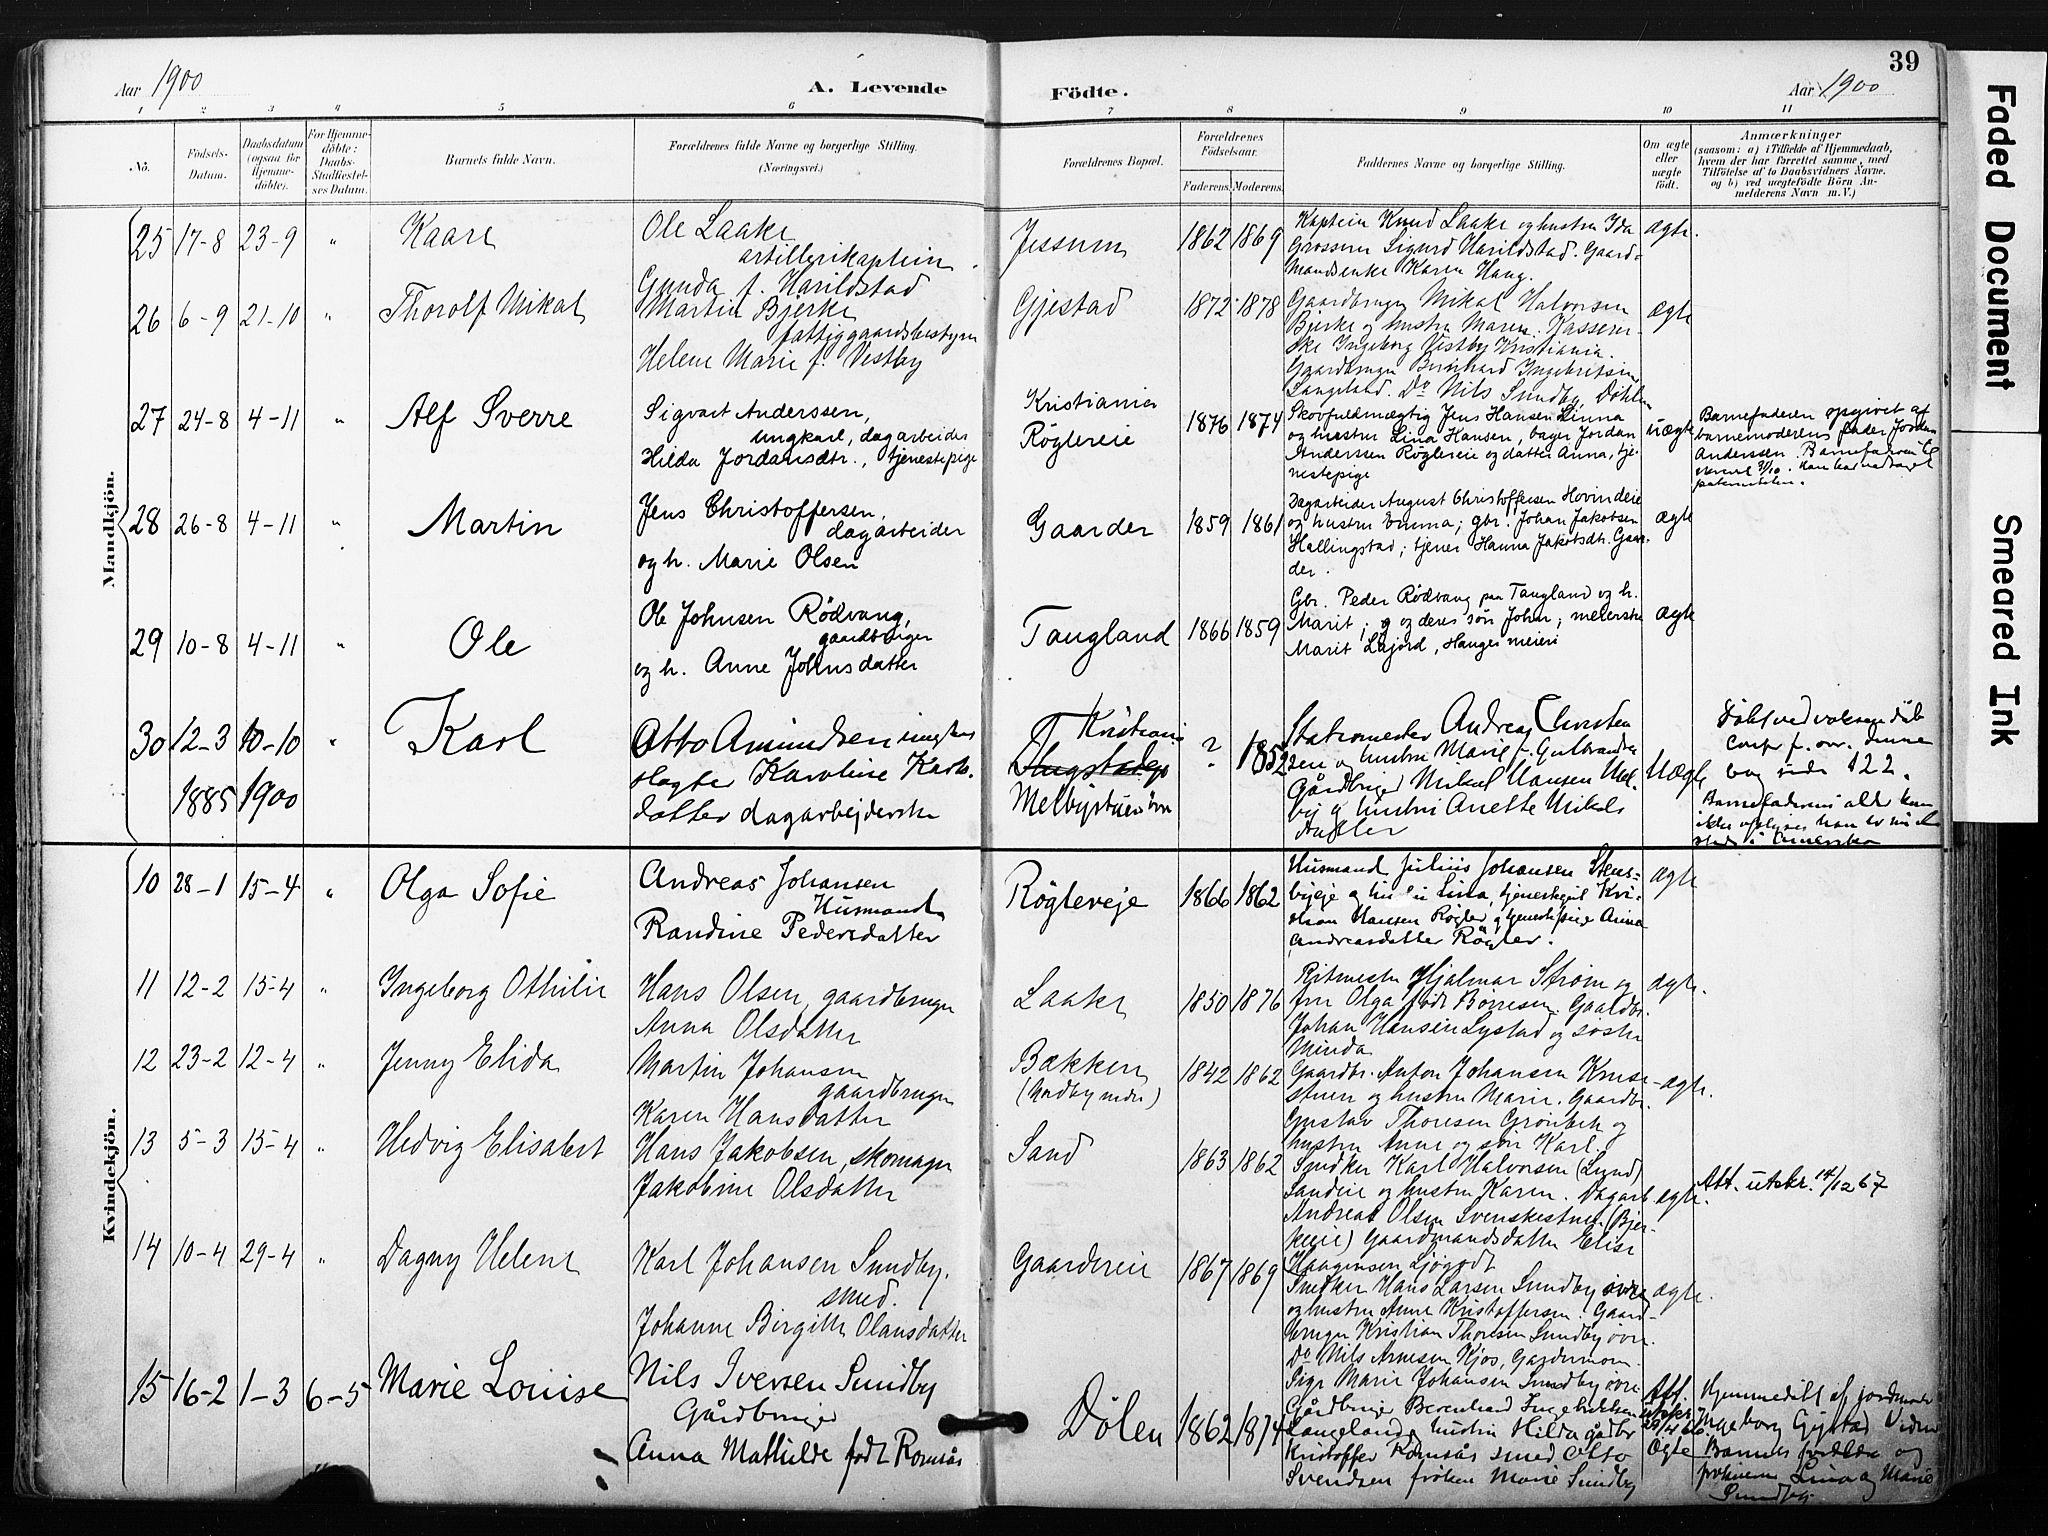 39
Aar 1900
A. Levende
Födte.
Aar 1900
1 2 3 4 5 6 7 8 9 10 11
No.
Födsels-Datum.
Daabsdatum (ogsaa for Hjemmedöbte).
For Hjemmedöbte: Daabs-Stadfæstelses Datum.
Barnets fulde Navn.
Forældrenes fulde Navne og borgerlige Stilling.
(Næringsvei.)
Forældrenes Bopæl.
Forældrenes Födselsaar.
Faderens. Moderens.
Faddernes Navne og borgerlige Stilling.
Om ægte eller uægte födt.
Anmærkninger
(saasom: a) i Tilfælde af Hjemmedaab,
hvem der har forrettet samme, med
Tilföielse af to Daabsvidners Navne.
og b) ved uægtefödte Börn An-
melderens Navn m. V.)
Mandkjön.
25 17-8 23-9 " Kaare
Ole Laake
artillerikaptein
Gunda f. Harildstad
Jessum 1862 1869
Kaptein Knud Laake og hustru Ida
Grosserer Sigurd Harildstad. Gaard-
mandsenke Karen Haug.
ægte.
26 6-9 21-10 " Thorolf Mikal
Martin Bjerke
fattiggaardsbestyrer
Helene Marie f. Vestby
Gjestad 1872 1878
Gaardbruger Mikal Halvorsen
Bjerke og hustru Maren. Kasserer-
ske Ingeborg Vestby Kristiania.
Gaardbruger Bernhard Ingebritsen
Langeland. Do Nils Sundby, Döhlen
ægte
27 24-8 4-11 " Alf Sverre
Sigvart Anderssen,
ungkarl, dagarbeider
Hilda Jordansdtr., tjenestepige
Kristiania
Röglereie
1876 1874
Skovfuldmægtig Jens Hansen Linna
og hustru Lina Hansen, bager Jordan
Anderssen Röglereie og datter Anna, tje-
nestepige
uægte
Barnefaderen opgivet af
barnemoderens fader Jordan
Anderssen. Barnefaderen til
skrevet 31/10. Han har vedtaget
paterniteten.
28 26-8 4-11 " Martin
Jens Christoffersen,
dagarbeider
og h. Marie Olsen
Gaarder 1859 1861
Dagarbeider August Christoffersen Hovindeie
og hustru Emma; gbr. Johan Jakobsen
Hallingstad; tjener Hanna Jakobsdtr. Gaar-
der.
ægte
29 10-8 4-11 " Ole
Ole Johnsen Rödvang,
gaardbruger
og h. Anne Johnsdatter
Taugland 1866 1859
Gbr. Peder Rödvang paa Taugland og h.
Marit; og deres sön John; meierske
Marit Lajord, Hauger meieri
ægte
30 12-3 10-10 " Karl
1885 1900
Otto Amundsen
Karoline Karls
datter dagarbejderske
Kristiania
Melbystuen
? 1852
Stationsmester Andreas Christen
sen og hustru Marie f. Gulbrandsen
Gårdbruger Mikal Hansen Mel-
by og hustru Anette Mikals
datter
Uægte
Döbt ved voksen dåb
Conf f. ovr. denne
bog side 122.
Barnefaderens alder kan
ikke oplyses han er
i Amerika
Kvindekjön.
10 28-1 15-4 " Olga Sofie
Andreas Johansen
Husmand
Randine Pedersdatter
Rögleveje 1866 1862
Husmand Julius Johansen Stens-
byeje og hustru Lina, tjenestegut Kri-
stian Hansen Rögler og tjenestepige Anna
Andreasdatter Rögler.
ægte
11 12-2 15-4 " Ingeborg Othilie
Hans Olsen, gaardbruger
Anna Olsdatter
Laake 1850 1876
Ritmester Hjalmar Ström og
fru Olga födt Börresen. Gaardbr.
Johan Hansen Lystad og söster
Minda
ægte.
12 23-2 12-4 " Jenny Elida
Martin Johansen
gaardbruger
Karen Hansdatter
Bækken
(Nordby nedre)
1842 1862
Gaardbr. Anton Johansen Kruse-
stuen og hustru Marie. Gaardbr.
Gustav Thoresen Grönbek og
hustru Anne og sön Karl.
ægte.
13 5-3 15-4 " Hedvig Elisabet
Hans Jakobsen, skomager
Jakobine Olsdatter
Sand 1863 1862
Snedker Karl Halvorsen (Lund)
Sandeie og hustru Karen. Dagarb.
Andreas Olsen Svenskestuen (Bjer-
keeie) Gaardmandsdatter Elise
Haagensen Ljögodt
ægte.
Att. utskr. 14/12 67
14 10-4 29-4 " Dagny Helene
Karl Johansen Sundby.
smed.
Johanne Birgitte Olausdatter
Gaardereie 1867 1869
Snedker Hans Larsen Sundby övre
og hustru Anne Kristoffersen. Gaard-
bruger Kristian Thoresen Sundby övre.
Do Nils Arnesen Kjos, Gardermoen.
Pige Marie Johansen Sundby övre
ægte.
15 16-2 1-3 6-5 Marie Louise
Nils Iversen Sundby
Gårdbruger
Anna Mathilde födt Romsås
Dölen 1862 1874
Gårdbruger Bernhard Ingebretsen
Langeland, hustru Hilda gådbr
Kristoffer Romsås smed Otto
Svendsen fröken Marie Sundby
Att. utskr. 29/4 66.
Ægte
Hjemmedöbt af jordmoder
Ingeborg Gjestad Vidner
Barnets forældre og
fröknerne Lina og Marie
Sundby
Faded Document
Smeared Ink